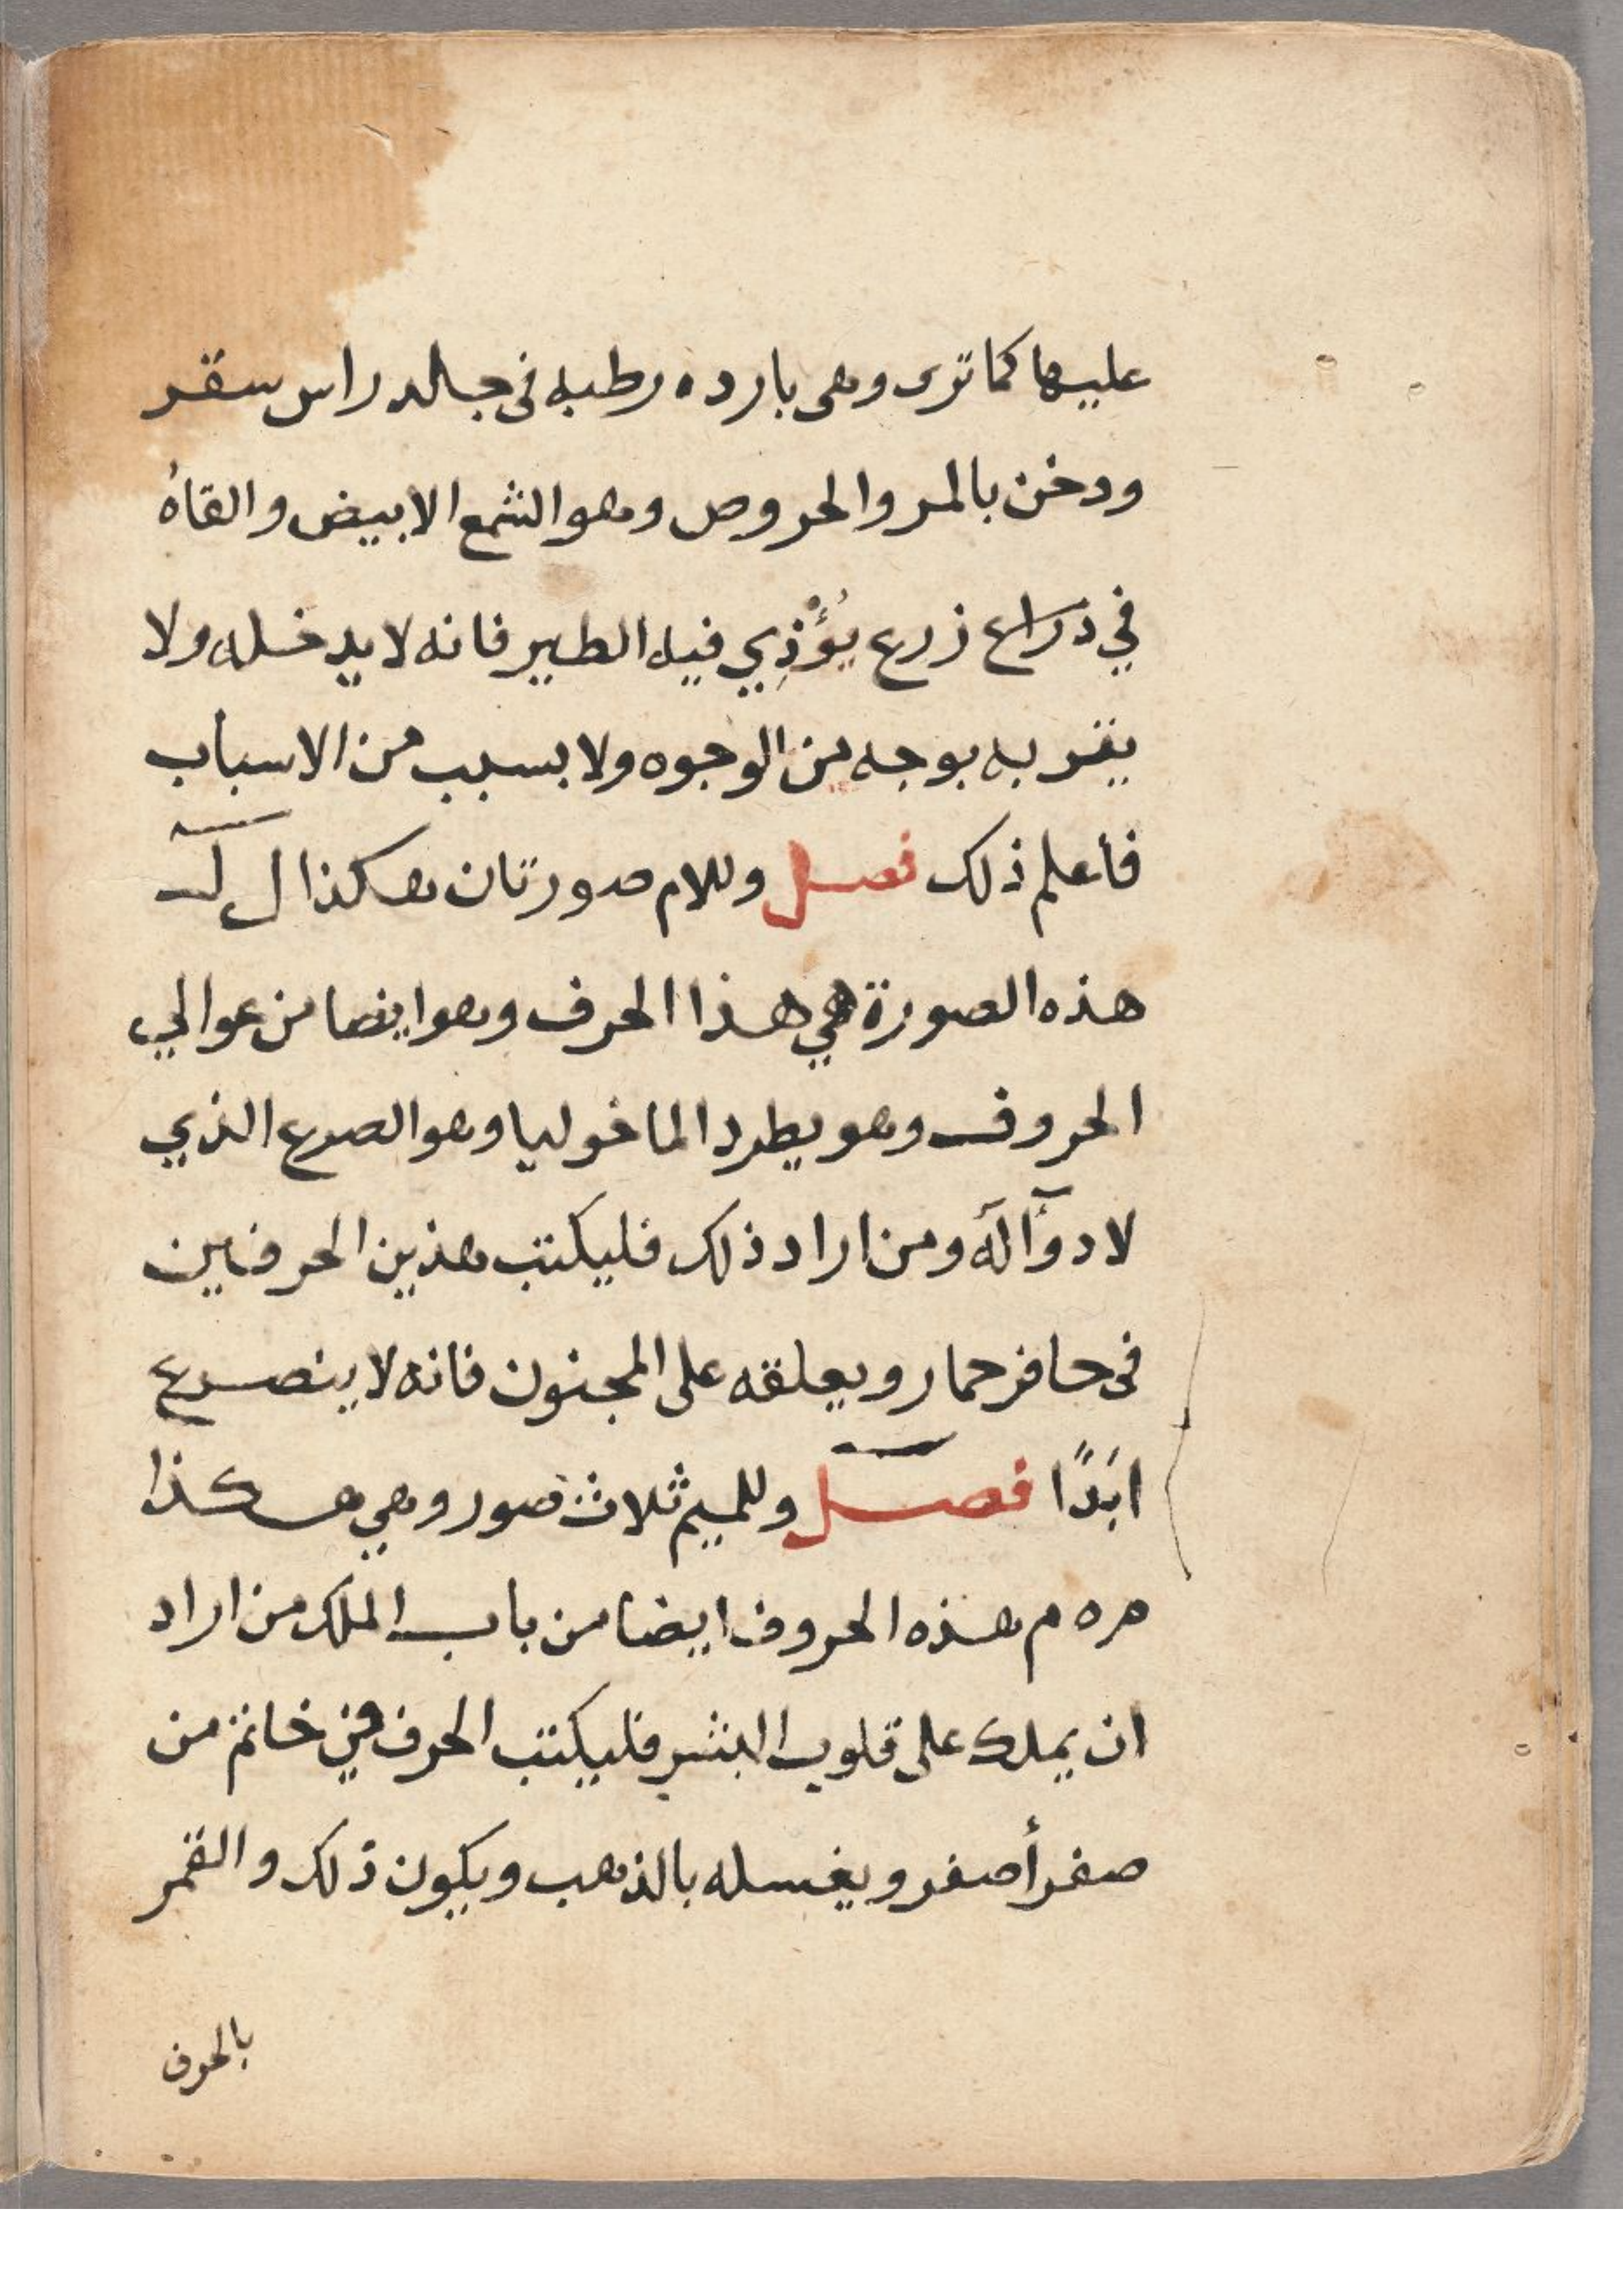 عليها كما ترى وهى بارده رطبه فى جلد راس سقر
ودخن بالمر والحروص وهو الشمع الابيض والقاهُ
في ذراع زرع يُؤْذِي فيه الطير فانه لا يدخله ولا
يقربه بوجه من الوجوه ولا بسبب من الاسباب
فاعلم ذلك فصل وللام صورتان هكذا ل لـ
هذه الصورة هي هذا الحرف وهو ايضا من عوالي
الحروف وهو يطرد الماخوليا وهو الصرع الذي
لا دوآء لَه ومن اراد ذلك فليكتب هذين الحرفين
فى حافر حمار ويعلقه على المجنون فانه لا ينصرع
ابَدًا فصل وللميم ثلاث صور وهي هكذا
مر ه م هذه الحروف ايضا من باب الملك من اراد
ان يملك على قلوب البشر فليكتب الحرف في خاتم من
صفر أصفر ويغسله بالذهب ويكون ذلك والقمر
بالحرف